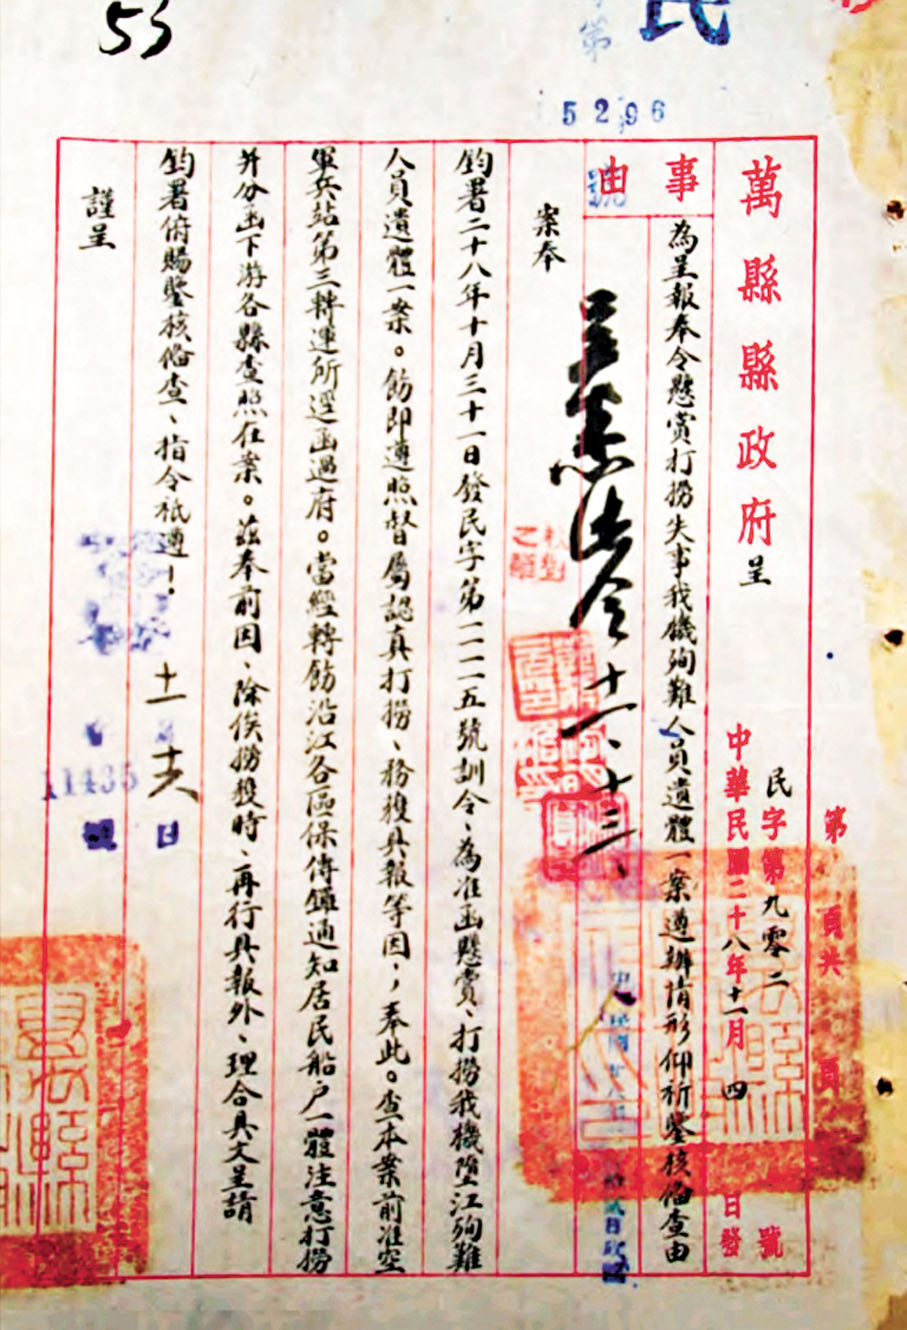 53
民
第
5296
號
第 頁共 頁
萬縣縣政府呈
民字第九零二號
中華民國二十八年十一月四日發
事由
為呈報奉令懸賞打撈失事我機殉難人員遺體一案遵辦情形仰祈鑒核備查由
十一、十三、
案奉
鈞署二十八年十月三十一日發民字第一一一五號訓令、為准函懸賞、打撈我機墮江殉難
人員遺體一案。飭即遵照督屬認真打撈、務獲具報等因，奉此。查本案前准空
軍兵站第三轉運所逕函過府。當經轉飭沿江各區保傳鑼通知居民船户一體注意打撈
并分函下游各縣查照在案。茲奉前因、除俟撈獲時、再行具報外、理合具文呈請
鈞署俯賜鑒核備查、指令祇遵！
謹呈
十一 日
11435